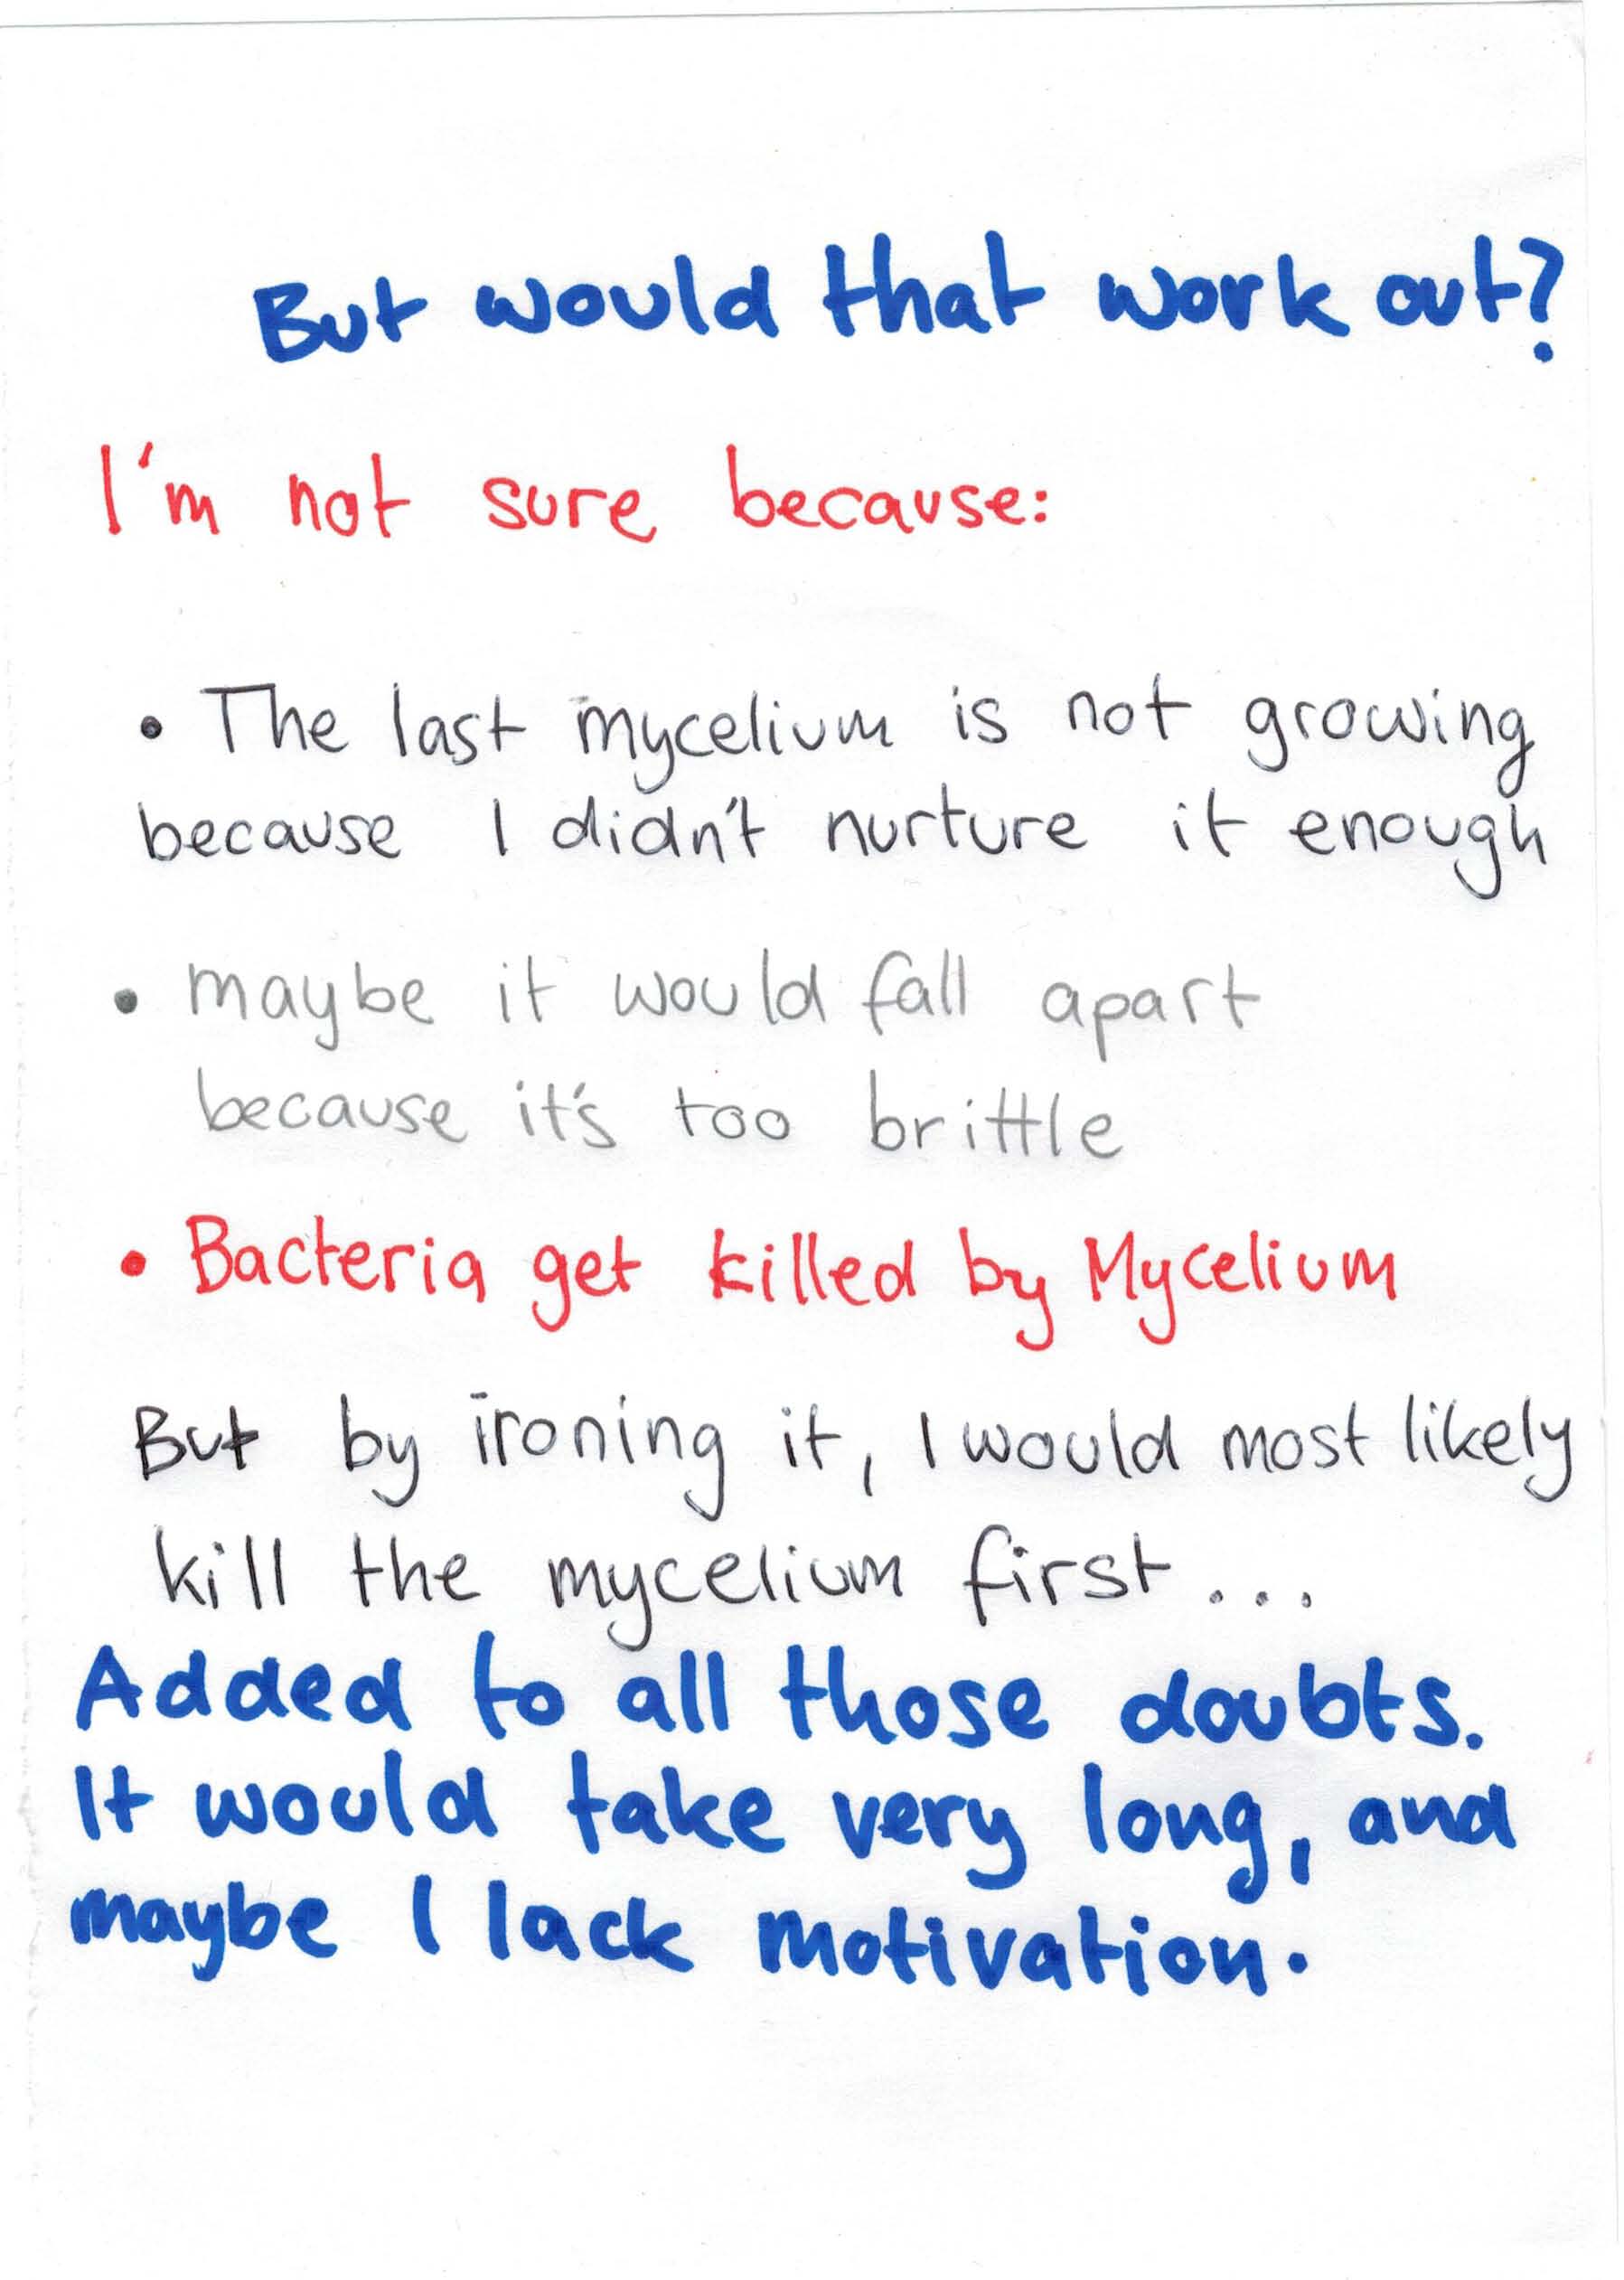 But would that work out?
I'm not sure because:
• The last mycelium is not growing
because I didn't nurture it enough
• maybe it would fall apart
because it's too brittle
• Bacteria get killed by Mycelium
But by ironing it, I would most likely
kill the mycelium first...
Added to all those doubts.
It would take very long, and
maybe I lack motivation.